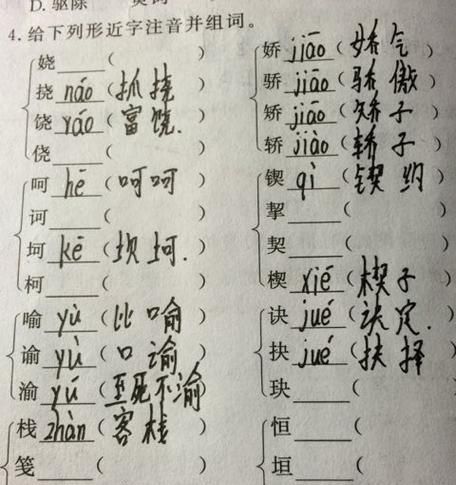 D. 驱除
4. 给下列形近字注音并组词。
娆____( )
挠 náo (抓挠 )
饶 ráo (富饶. )
侥____( )
呵 hē (呵呵 )
诃____( )
坷 kē (坝坷. )
柯____( )
喻 yù (比喻 )
谕 yù (口谕 )
渝 yú (至死不渝
栈 zhàn (客栈 )
笺____( )
娇 jiāo (娇气 )
骄 jiāo (骄傲 )
矫 jiāo (矫子 )
轿 jiào (轿子 )
锲 qì (锲约 )
挈____( )
契____( )
楔 xiē (楔子 )
诀 jué (诀定. )
抉 jué (抉择 )
玦____( )
恒____(
垣____(